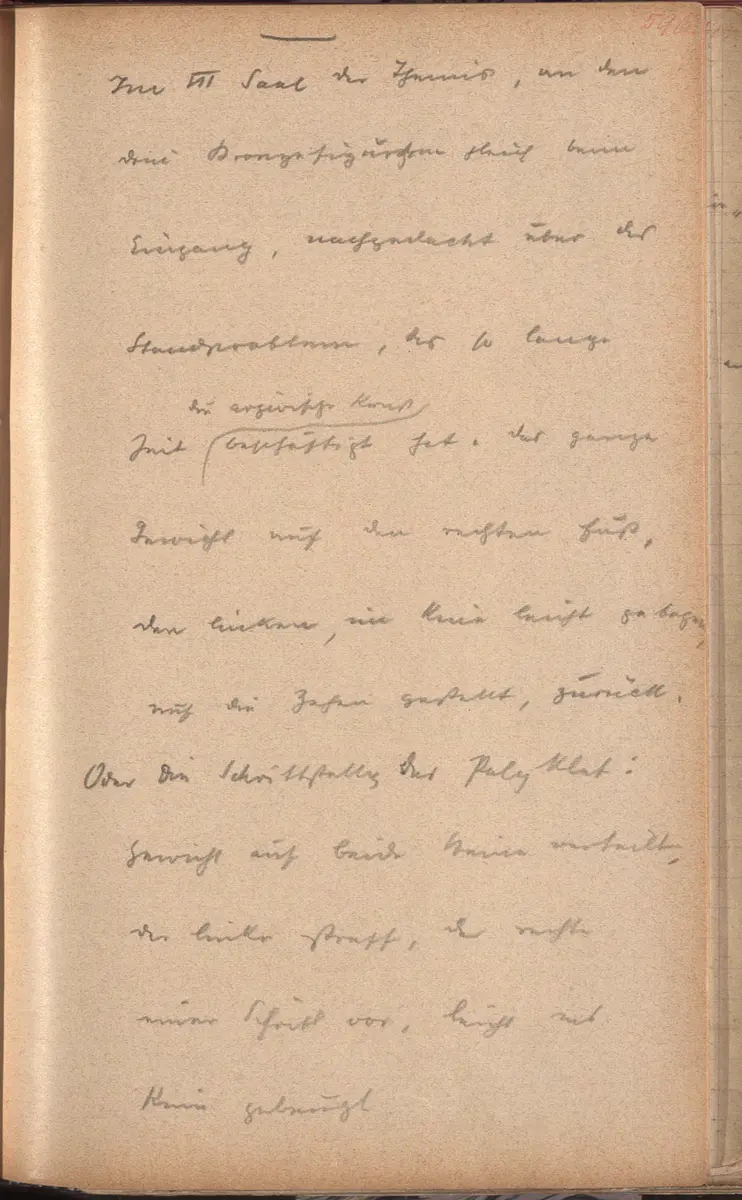 Im III Saal der Themis, an den
drei Bronzefigürchen gleich beim
Eingang, nachgedacht über das
Standproblem, das so lange
die argivische Kunst
Zeit beschäftigt hat. das ganze
Gewicht auf den rechten Fuß,
den linken, im Knie leicht gebogen,
auf die Zehen gestellt, zurück.
Oder die Schrittstellg des Polyklet:
Gewicht auf beide Beine verteilt,
der linke straff, der rechte
einen Schritt vor, leicht im
Knie gebeugt